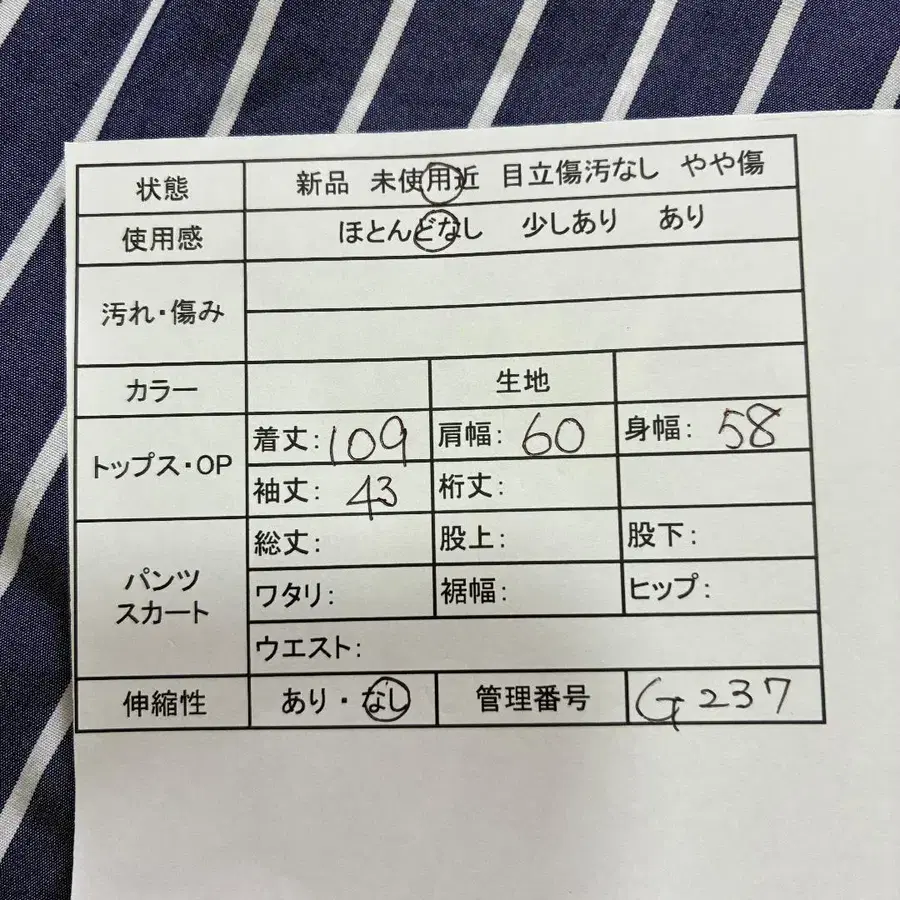 状態 新品 未使用近 目立傷汚なし やや傷
使用感 ほとんどなし 少しあり あり
汚れ・傷み
カラー 生地
トップス・OP 着丈: 109 肩幅: 60 身幅: 58
袖丈: 43 裄丈:
パンツ スカート 総丈: 股上: 股下:
ワタリ: 裾幅: ヒップ:
ウエスト:
伸縮性 あり・なし 管理番号 G237